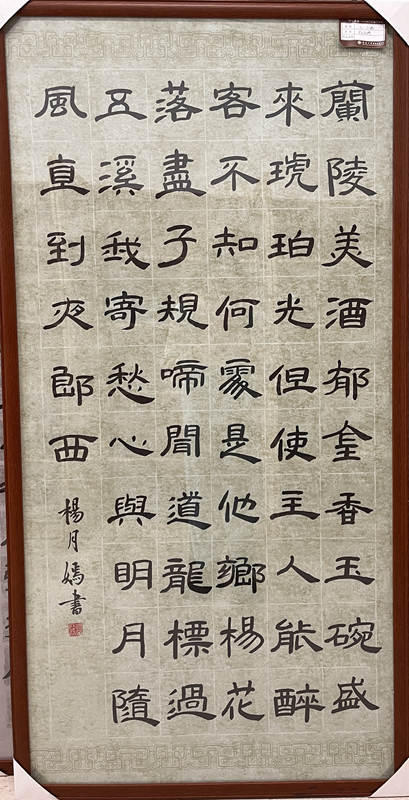 蘭陵美酒郁金香玉碗盛
來琥珀光但使主人能醉
客不知何處是他鄉楊花
落盡子規啼聞道龍標過
五溪我寄愁心與明月隨
風直到夜郎西
楊月嫣書